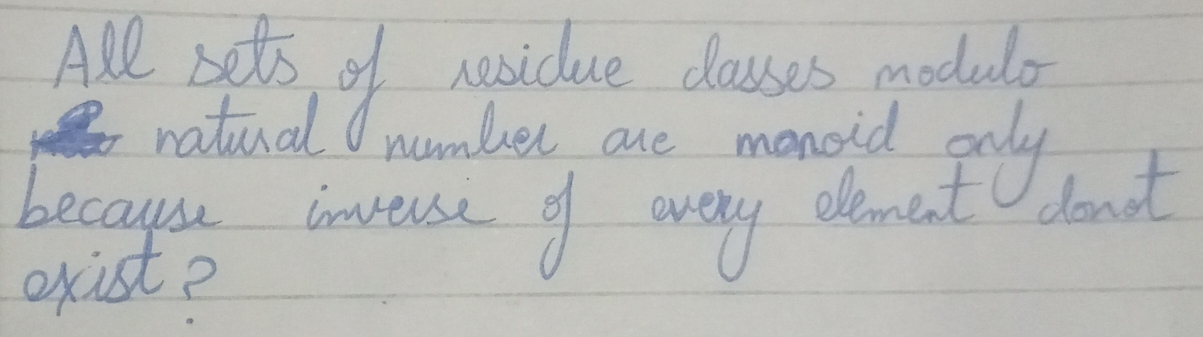 All sets of residue classes modulo
natural number are monoid only
because inverse of every element donot
exist?